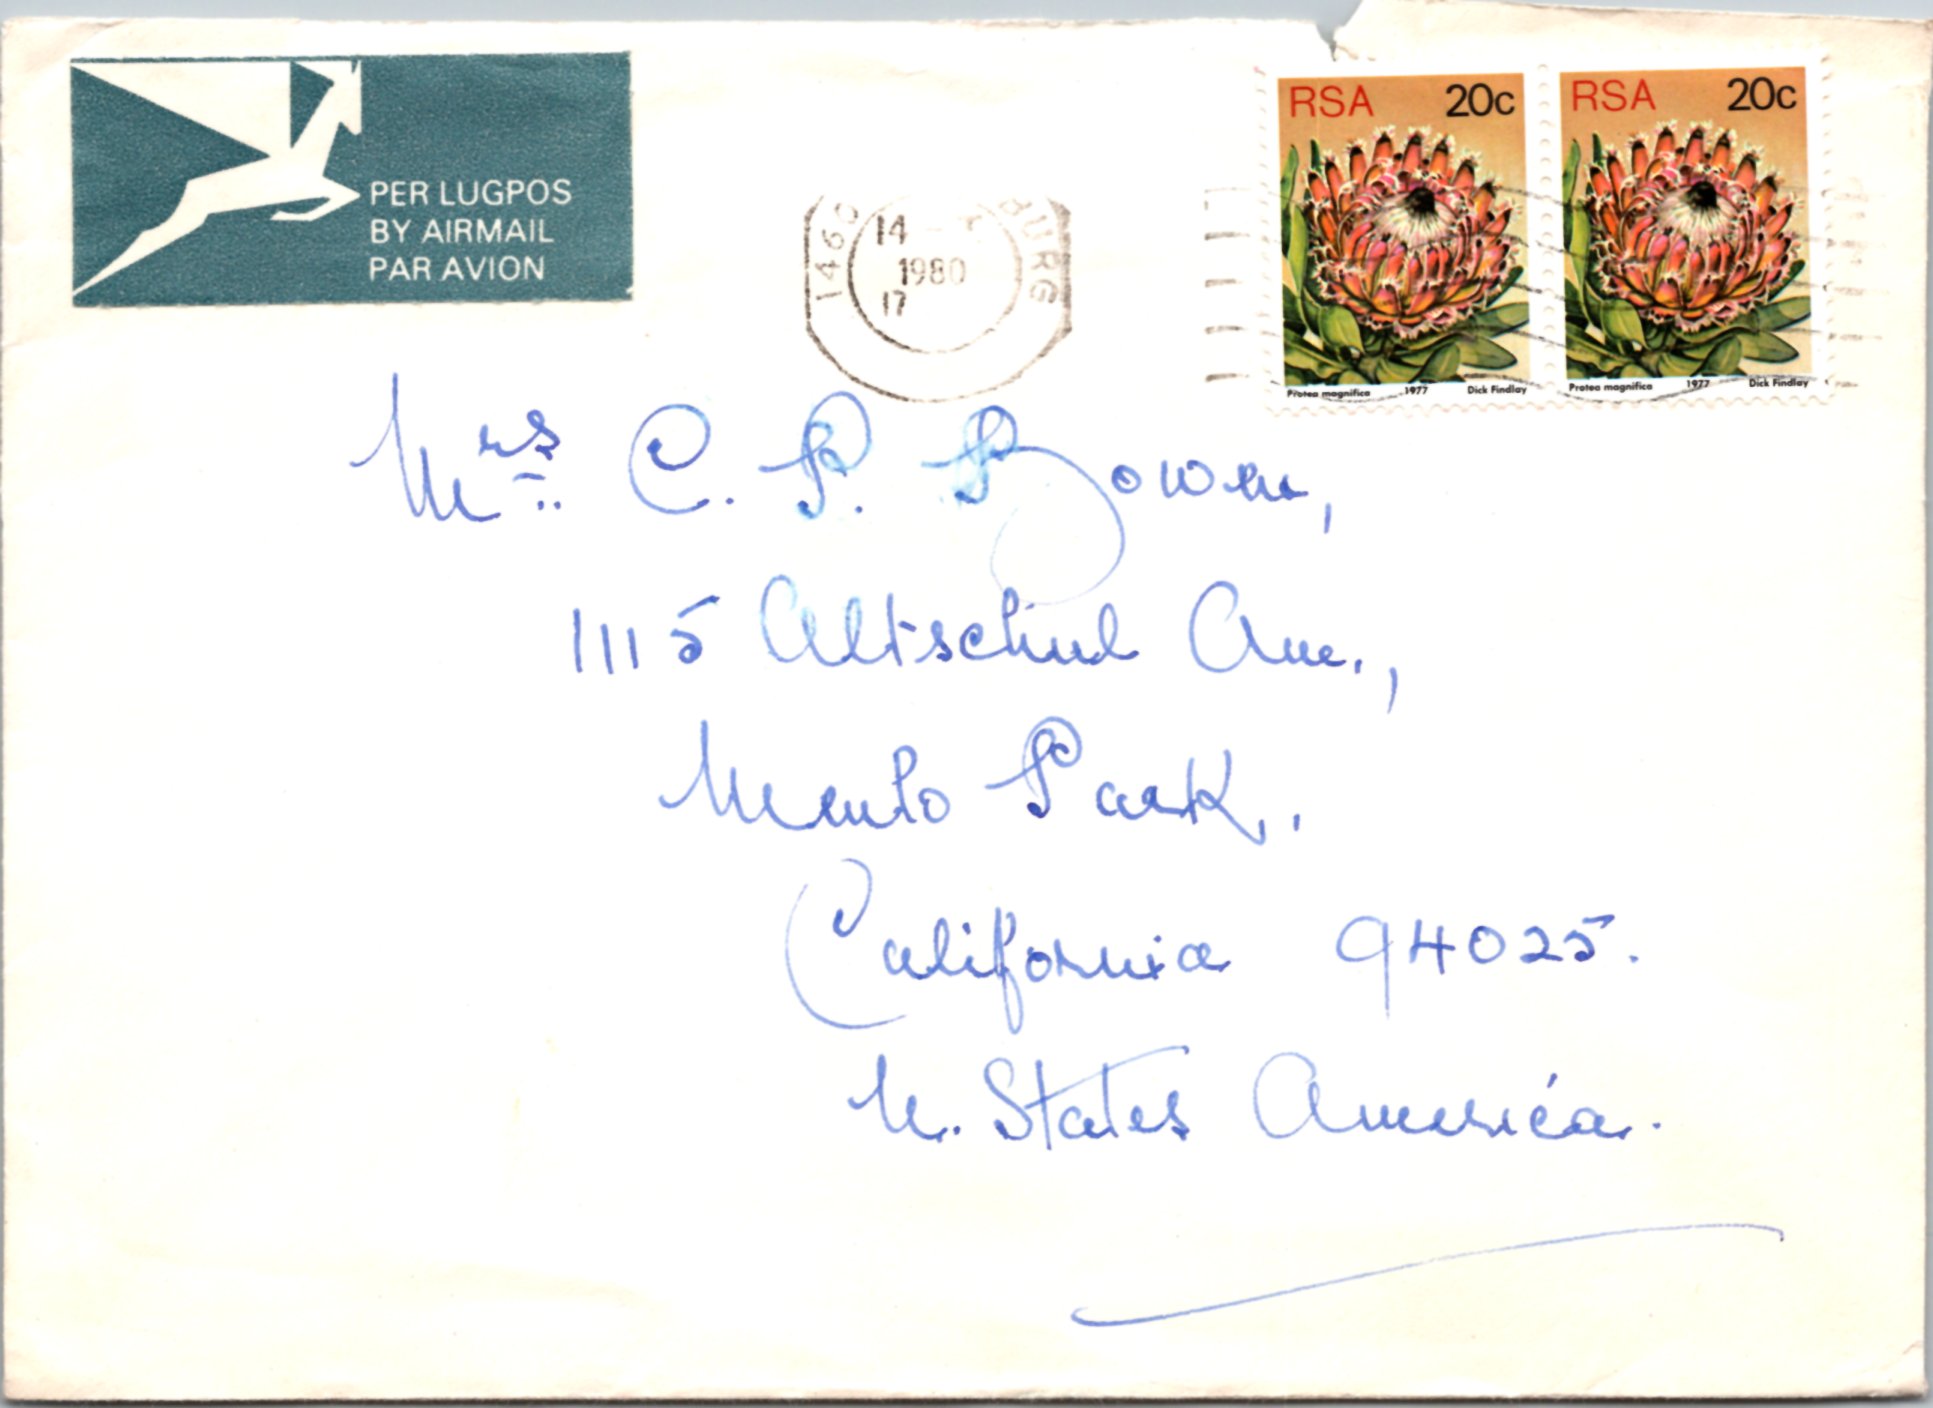 PER LUGPOS
BY AIRMAIL
PAR AVION
14
1980
17
BURG
RSA 20c
Protea magnifica 1977 Dick Findlay
RSA 20c
Protea magnifica 1977 Dick Findlay
Mrs. C. P. Bowen,
1115 Altschul Ave.,
Menlo Park,.
California 94025.
U. States America.